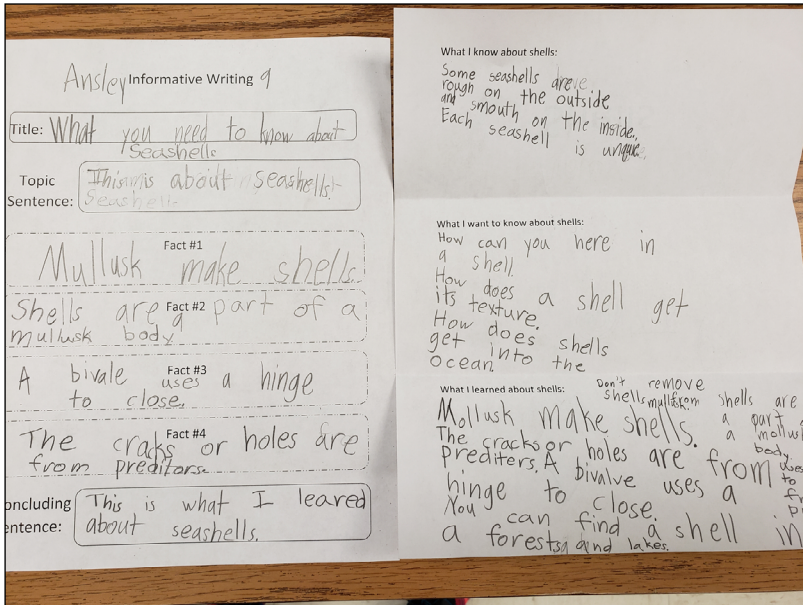 Ansley Informative Writing 9
Title: What you need to know about
Seashells
Topic
Sentence:
This is about seashells.
Fact #1
Mullusk make shells.
Fact #2
Shells are a part of a
mullusk body
Fact #3
A bivale uses a hinge
to close.
Fact #4
The cracks or holes are
from preditors.
oncluding
entence:
This is what I leared
about seashells.
What I know about shells:
Some seashells are
rough on the outside
and smouth on the inside.
Each seashell is unque.
What I want to know about shells:
How can you here in
a shell.
How does a shell get
its texture.
How does shells
get into the
ocean
What I learned about shells:
Don't remove
shells from
mullusk.
Mollusk make shells.
shells are
a part
a mollus
body.
The cracks or holes are from
prediters. A bivalve uses a
hinge to close.
You can find a shell in
a forests and lakes.